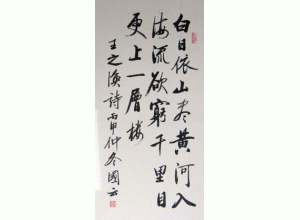 白日依山尽黄河入
海流欲窮千里目
更上一層楼
王之渙詩丙申仲冬國云